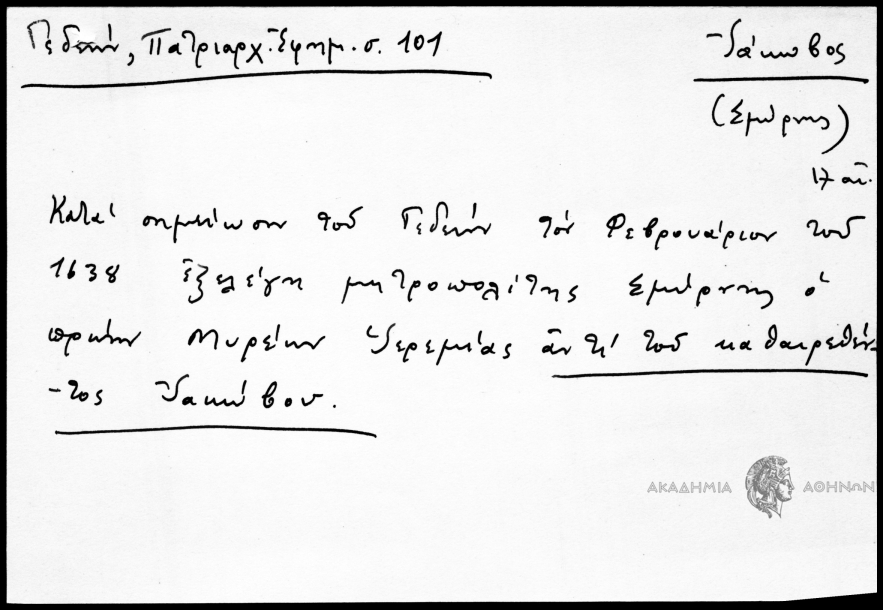 Γεδεών, Πατριαρχ. Ἐφημ. σ. 101
Ἰάκωβος
(Σμύρνης)
17 αἰ.
Κατά σημείωσιν τοῦ Γεδεών τόν Φεβρουάριον τοῦ
1638 ἐξελέγη μητροπολίτης Σμύρνης ὁ
πρώην Μυρέων Ἰερεμίας ἀντί τοῦ καθαιρεθέν-
-τος Ἰακώβου.
ΑΚΑΔΗΜΙΑ ΑΘΗΝΩΝ